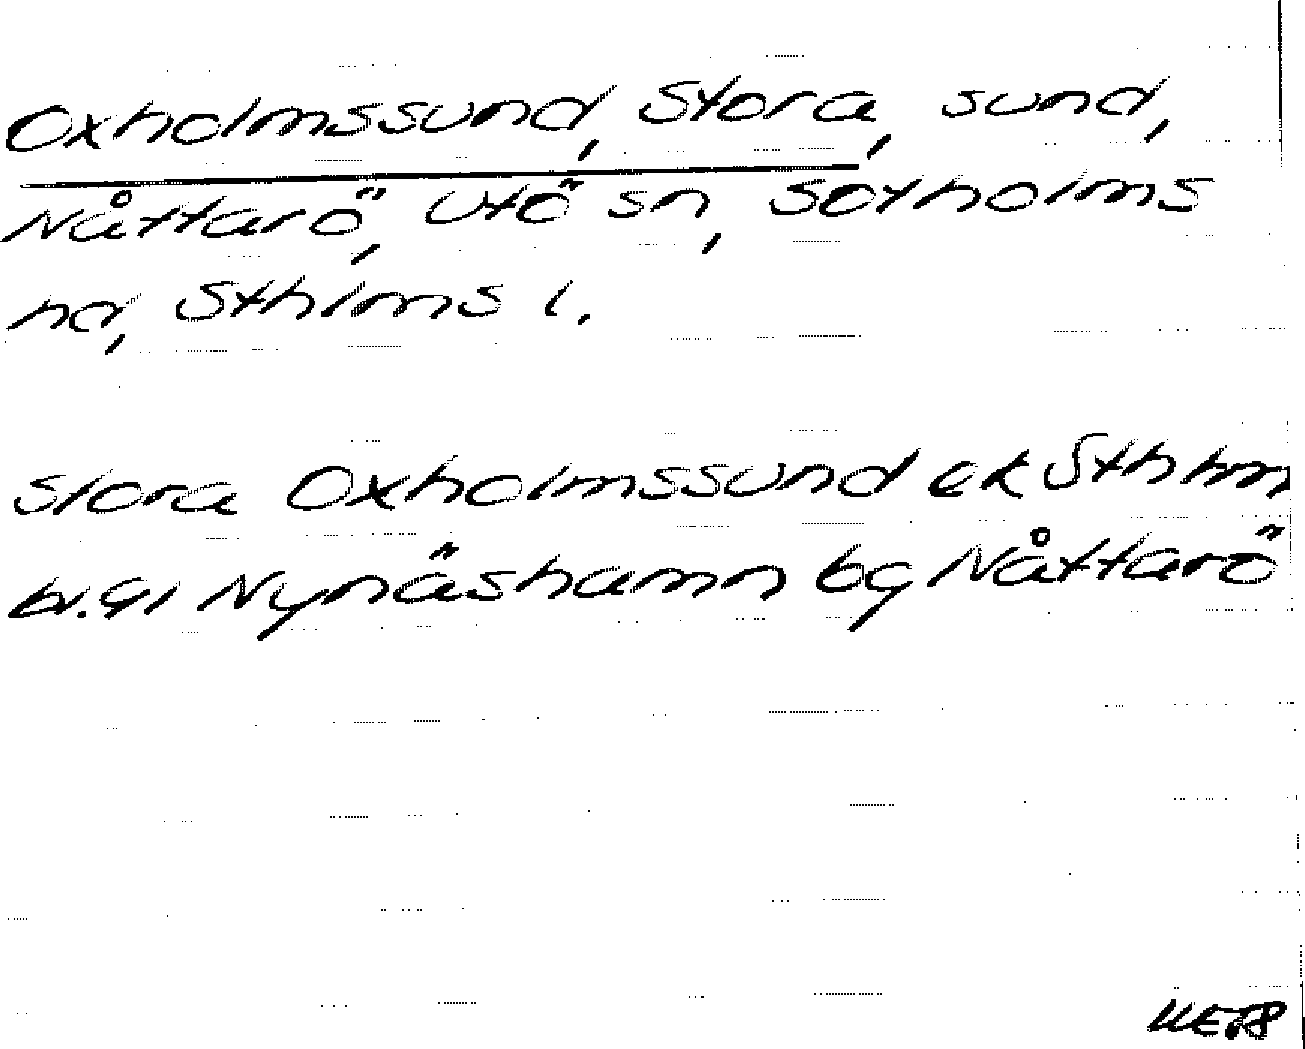 Oxholmssund, Stora, sund,
Nåttarö, Utö sn, Sotholms
hd, Sthlms l.
Stora Oxholmssund ek Sthlm
bl. 91 Nynäshamn bg Nåttarö